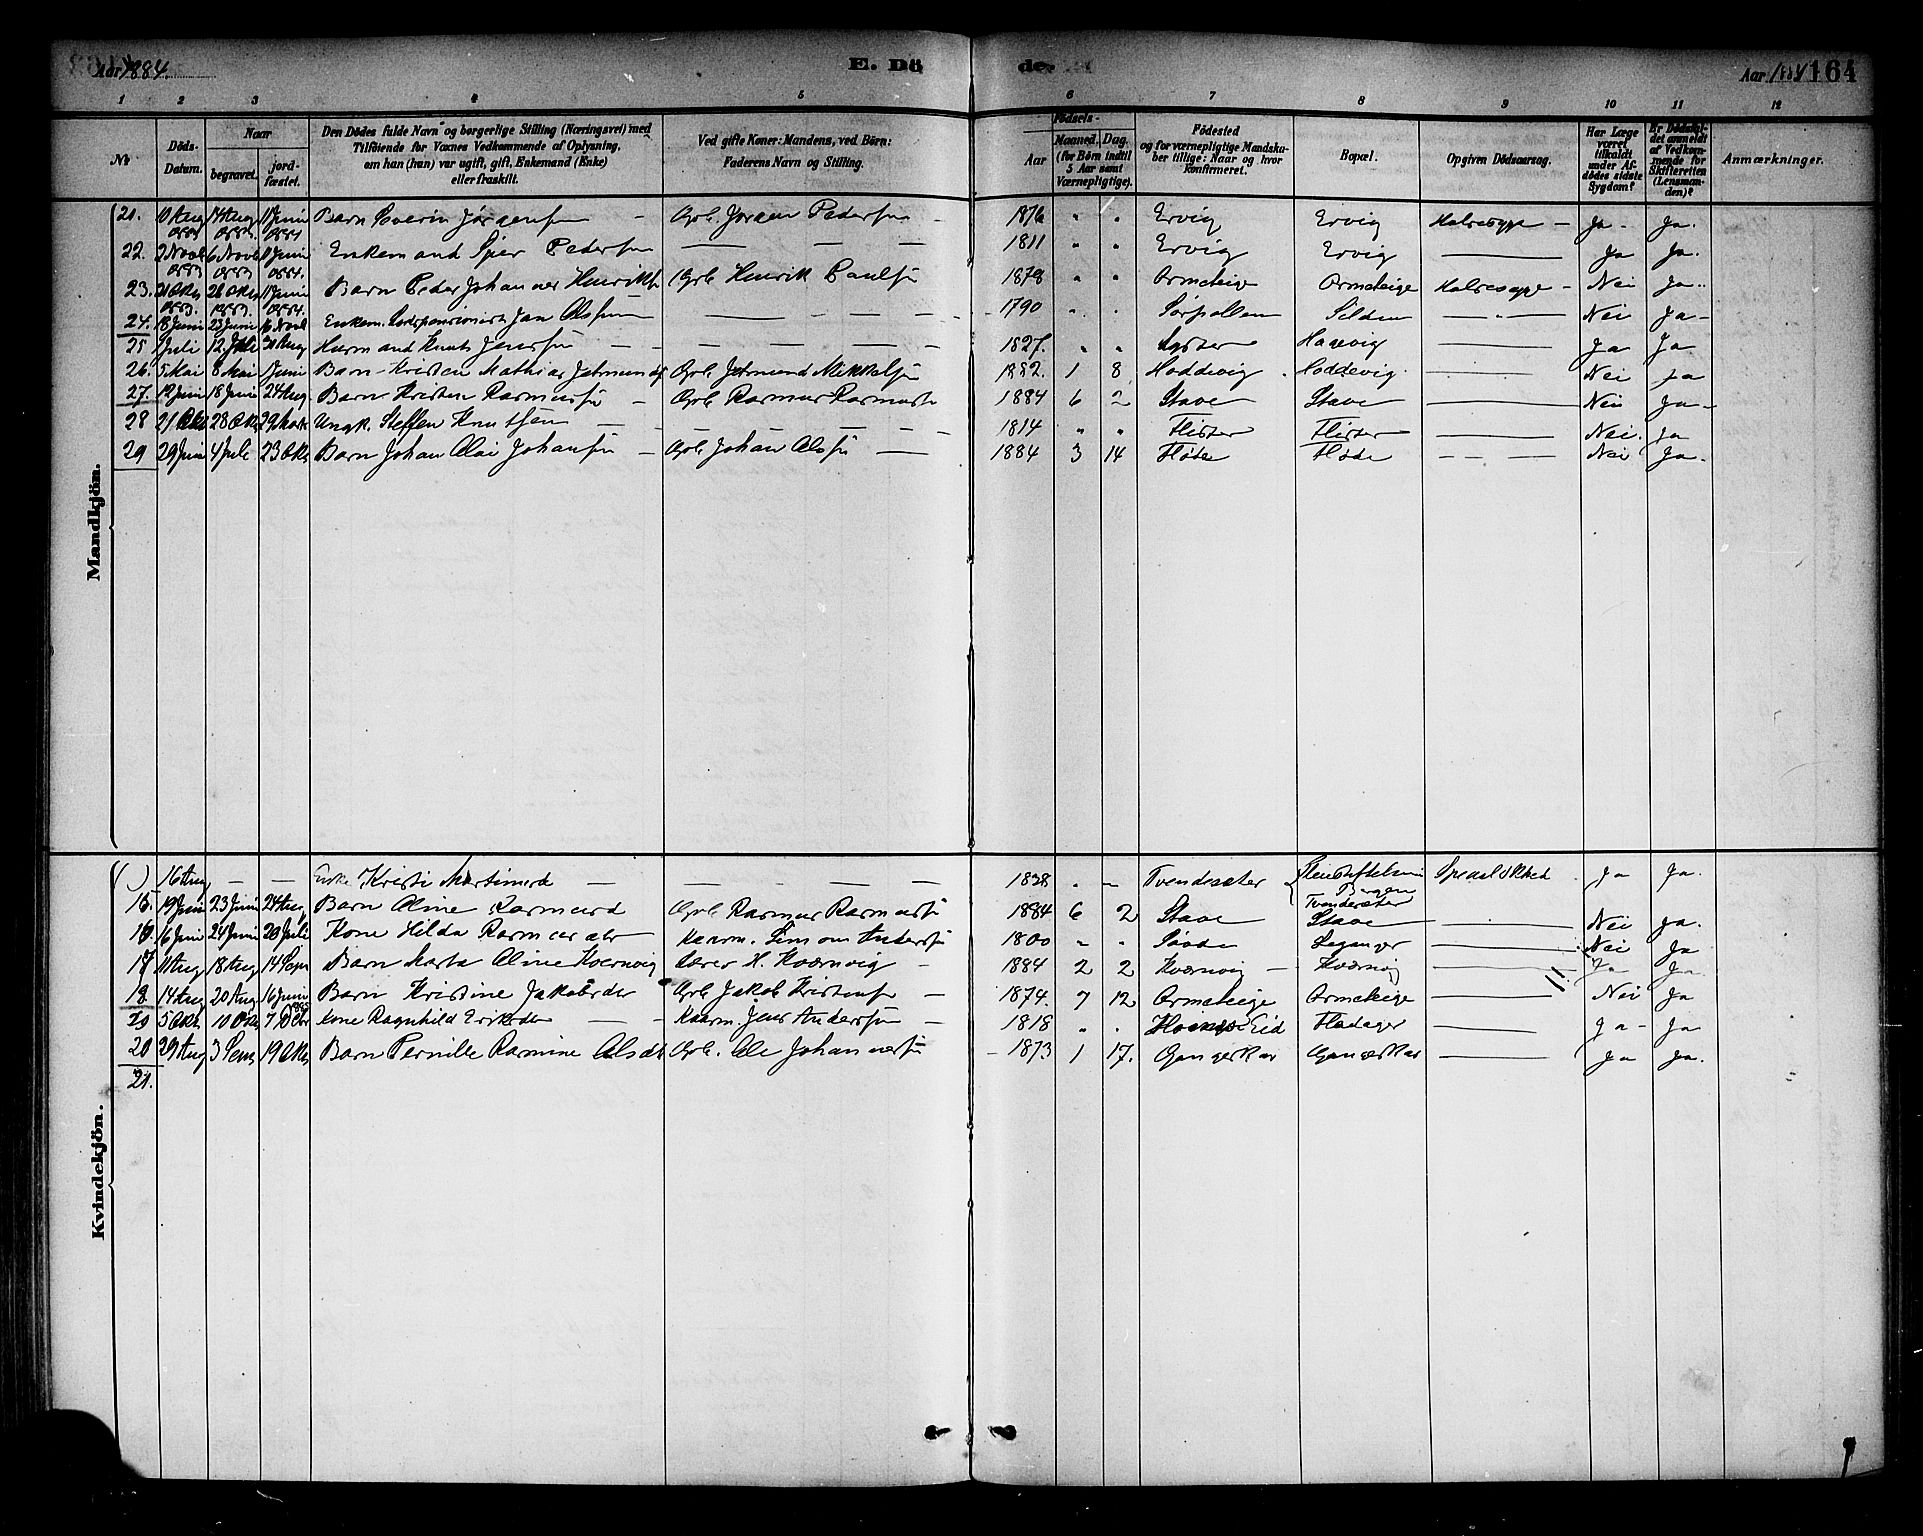 Aar 1884.
E. Dö
de.
Aar 1884
164
1 2 3 4 5 6 7 8 9 10 11 12
No
Döds-Datum.
Naar
begravet.
jord-fæstet.
Den Dödes fulde Navn og borgerlige Stilling (Næringsvei) med
Tilföiende for Voxnes Vedkommende af Oplysning,
om han (hun) var ugift, gift, Enkemand (Enke)
eller fraskilt.
Ved gifte Koner: Mandens, ved Börn:
Faderens Navn og Stilling.
Födsels-
Aar
Maaned. Dag.
(for Børn indtil
5 Aar samt
Værnepligtige).
Födested
og for værnepligtige Mandska-
ber tillige: Naar og hvor
konfirmeret.
Bopæl.
Opgiven Dödsaarsag.
Har Læge
været
tilkaldt
under Af-
dödes sidste
Sygdom?
Er Dödsfal-
det anmeldt
af Vedkom-
mende for
Skifteretten
(Lensman-
den)?
Anmærkninger.
Mandkjön.
21. 10 Aug 14 Aug 11 Juni Barn Severin Jørgensen Grb. Jørgen Pedersen 1876 " " Ervig Ervig Halsesyge Ja Ja.
22. 2 Novb 6 Novb 8 Juni Enkemand Sper Pedersen 1811 " " Ervig Ervig Ja Ja.
23. 21 Okt 26 Okt 11 Juni Barn Peder Johannes Henriks Grb Henrik Paulsen 1878 " " Ormeteige Ormeteige Halsesyge Nei Ja.
24. 18 Juni 23 Juni 16 Novb Enkem. Jan Olsen 1790 Sørpollen Selden Nei Ja
25 Juli 12 Juli Aug Husmand Knut Jensen 1827. " " Hoevig Ja Ja
26. 5 Mai 8 Mai Juni Barn Kristen Mathias Jetmunds Grb Jetmund Mikkelsen 1882. 1 8 Hoddevig Hoddevig. Nei Ja
27. 12 Juni 18 Juni 24 Aug Barn Kristen Rasmussen Grb Rasmus Rasmusse 1884 6 2 Stave Stave Nei Ja
28 21 Okt 28 Okt Ungk. Steffen Knutsen 1814 " " Flister Flister Nei. Ja
29 29 Juni 4 Juli 23 Okt Barn Johan Olai Johansen Grb Johan Olsen 1884 3 14 Fløde Fløde Nei Ja.
Kvindekjön.
( ) 16 Aug Enke Kristi Mortinsd 1828 Tvendesæter Pleiestiftelsen Bergen Tvendesæter Spedalskhed Ja Ja.
15. 19 Juni 23 Juni 24 Aug Barn Oline Rasmusd Grb Rasmus Rasmusse 1884 6 2 Stave Stave Nei Ja.
16. 16 Juni 24 Juni 20 Juli Kone Hilda Rasmusdtr Kaarm. Simon Andersen 1800 " Leganger Nei Ja
17 11 Aug 18 Aug 14 Sept Barn Marta Oline Kvernvig Lærer H. Kvernvig 1884 2 2 Kværnvig Kværnvig Ja Ja
18. 14 Aug 20 Aug 16 Juni Barn Kristine Jakobsdtr Grb Jakob Kristensen 1874. 7 12 Ormeteige Ormeteige Nei Ja
19 5 Okt 10 Okt Kone Ragnhild Eriksdtr Kaarm. Jens Andersen 1818 " " Eid Fladager Ja Ja
20 29 Aug 3 Sept 19 Okt Barn Pernille Rasmine Olsdt Grb. Ole Johannesen 1873 1 17. Gangeskar Gangeskar Ja Ja.
21.